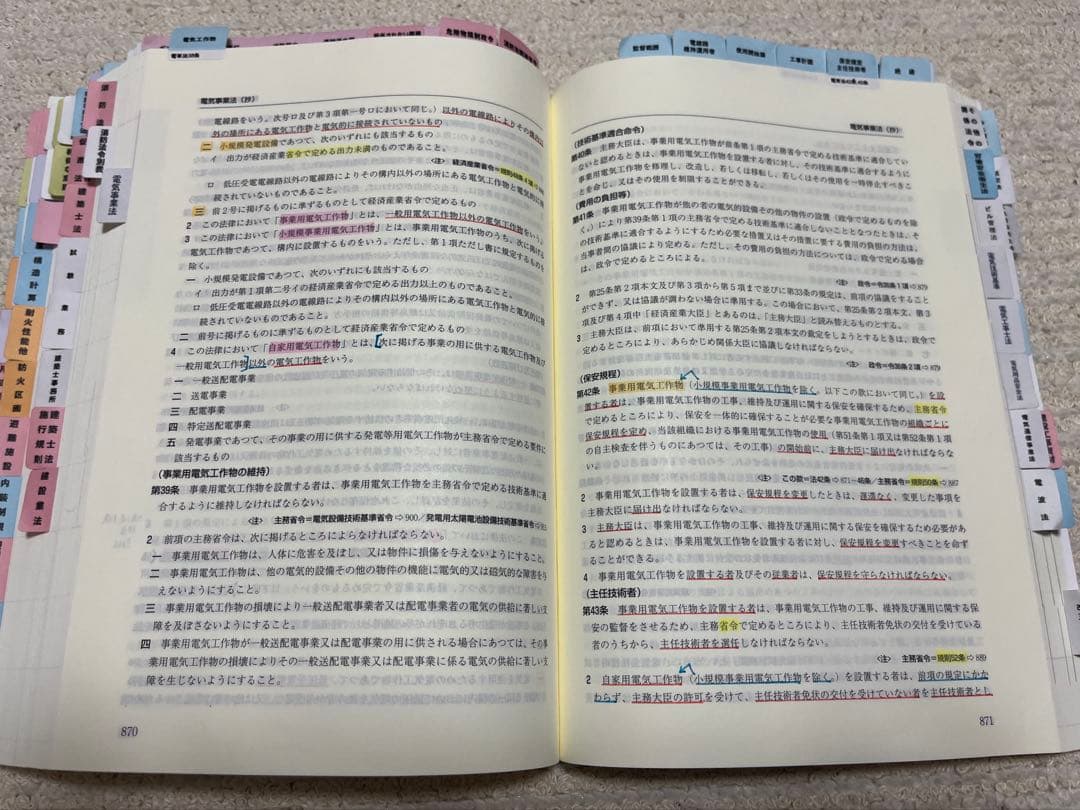 電気工作物
電事法38条
危険物規制政令
監督範囲
電線路
維持運用者
使用開始届
工事計画
保安規定
主任技術者
経過
電事法42条,43条
消防法
消防法令別表
電気事業法
建築士法
試験
業務
建築士事務所
構造計算
耐火性能他
防火区画
避難施設
内装制限
建築士法施行規則
建設業法
電気事業法(抄)
電線路をいう。次号ロ及び第3項第一号ロにおいて同じ。)以外の電線路によりその構内以
外の場所にある電気工作物と電気的に接続されていないもの
二 小規模発電設備であつて、次のいずれにも該当するもの
イ 出力が経済産業省令で定める出力未満のものであること。
〈注〉 経済産業省令=規則48条4項
ロ 低圧受電電線路以外の電線路によりその構内以外の場所にある電気工作物と電気的に接
続されていないものであること。
三 前2号に掲げるものに準ずるものとして経済産業省令で定めるもの
2 この法律において「事業用電気工作物」とは、一般用電気工作物以外の電気工作物をいう。
3 この法律において「小規模事業用電気工作物」とは、事業用電気工作物のうち、次に掲げる
電気工作物であつて、構内に設置するものをいう。ただし、第1項ただし書に規定するものを
除く。
一 小規模発電設備であつて、次のいずれにも該当するもの
イ 出力が第1項第二号イの経済産業省令で定める出力以上のものであること。
ロ 低圧受電電線路以外の電線路によりその構内以外の場所にある電気工作物と電気的に接
続されていないものであること。
二 前号に掲げるものに準ずるものとして経済産業省令で定めるもの
4 この法律において「自家用電気工作物」とは、次に掲げる事業の用に供する電気工作物及び
一般用電気工作物以外の電気工作物をいう。
一 一般送配電事業
二 送電事業
三 配電事業
四 特定送配電事業
五 発電事業であつて、その事業の用に供する発電等用電気工作物が主務省令で定める要件に
該当するもの
(事業用電気工作物の維持)
第39条 事業用電気工作物を設置する者は、事業用電気工作物を主務省令で定める技術基準に適
合するように維持しなければならない。
〈注〉 主務省令=電気設備技術基準省令⇨900/発電用太陽電池設備技術基準省令
2 前項の主務省令は、次に掲げるところによらなければならない。
一 事業用電気工作物は、人体に危害を及ぼし、又は物件に損傷を与えないようにすること。
二 事業用電気工作物は、他の電気的設備その他の物件の機能に電気的又は磁気的な障害を与
えないようにすること。
三 事業用電気工作物の損壊により一般送配電事業者又は配電事業者の電気の供給に著しい支
障を及ぼさないようにすること。
四 事業用電気工作物が一般送配電事業又は配電事業の用に供される場合にあつては、その事
業用電気工作物の損壊によりその一般送配電事業又は配電事業に係る電気の供給に著しい支
障を生じないようにすること。
870
電気事業法(抄)
(技術基準適合命令)
第40条 主務大臣は、事業用電気工作物が前条第1項の主務省令で定める技術基準に適合してい
ないと認めるときは、事業用電気工作物を設置する者に対し、その技術基準に適合するように
事業用電気工作物を修理し、改造し、若しくは移転し、若しくはその使用を一時停止すべきこ
とを命じ、又はその使用を制限することができる。
(費用の負担等)
第41条 事業用電気工作物が他の者の電気的設備その他の物件の設置(政令で定めるものを除
く。)により第39条第1項の主務省令で定める技術基準に適合しないこととなつたときは、そ
の技術基準に適合するようにするため必要な措置又はその措置に要する費用の負担の方法は、
当事者間の協議により定める。ただし、その費用の負担の方法については、政令で定める場合
は、政令で定めるところによる。
〈注〉 政令=令和条1項⇨879
2 第25条第2項本文及び第3項から第5項まで並びに第33条の規定は、前項の協議をすること
ができず、又は協議が調わない場合に準用する。この場合において、第25条第2項本文、第3
項及び第4項中「経済産業大臣」とあるのは、「主務大臣」と読み替えるものとする。
3 主務大臣は、前項において準用する第25条第2項本文の裁定をしようとするときは、政令で
定めるところにより、あらかじめ関係大臣に協議しなければならない。
(保安規程)
第42条 事業用電気工作物(小規模事業用電気工作物を除く。以下この款において同じ。)を設
置する者は、事業用電気工作物の工事、維持及び運用に関する保安を確保するため、主務省令
で定めるところにより、保安を一体的に確保することが必要な事業用電気工作物の組織ごとに
保安規程を定め、当該組織における事業用電気工作物の使用(第51条第1項又は第52条第1項
の自主検査を伴うものにあつては、その工事)の開始前に、主務大臣に届け出なければならな
い。
〈注〉 この款=法42条⇨871~46条/主務省令=規則50条⇨887
2 事業用電気工作物を設置する者は、保安規程を変更したときは、遅滞なく、変更した事項を
主務大臣に届け出なければならない。
3 主務大臣は、事業用電気工作物の工事、維持及び運用に関する保安を確保するため必要があ
ると認めるときは、事業用電気工作物を設置する者に対し、保安規程を変更すべきことを命ず
ることができる。
4 事業用電気工作物を設置する者及びその従業者は、保安規程を守らなければならない。
(主任技術者)
第43条 事業用電気工作物を設置する者は、事業用電気工作物の工事、維持及び運用に関する保
安の監督をさせるため、主務省令で定めるところにより、主任技術者免状の交付を受けている
者のうちから、主任技術者を選任しなければならない。
〈注〉 主務省令=規則52条⇨889
2 自家用電気工作物(小規模事業用電気工作物を除く。)を設置する者は、前項の規定にかか
わらず、主務大臣の許可を受けて、主任技術者免状の交付を受けていない者を主任技術者とし
871
その他の関係法令
労働安全衛生法
ビル管理法
電気技術基準
電気工事士法
電気用品安全法
電気通信事業法
電波法